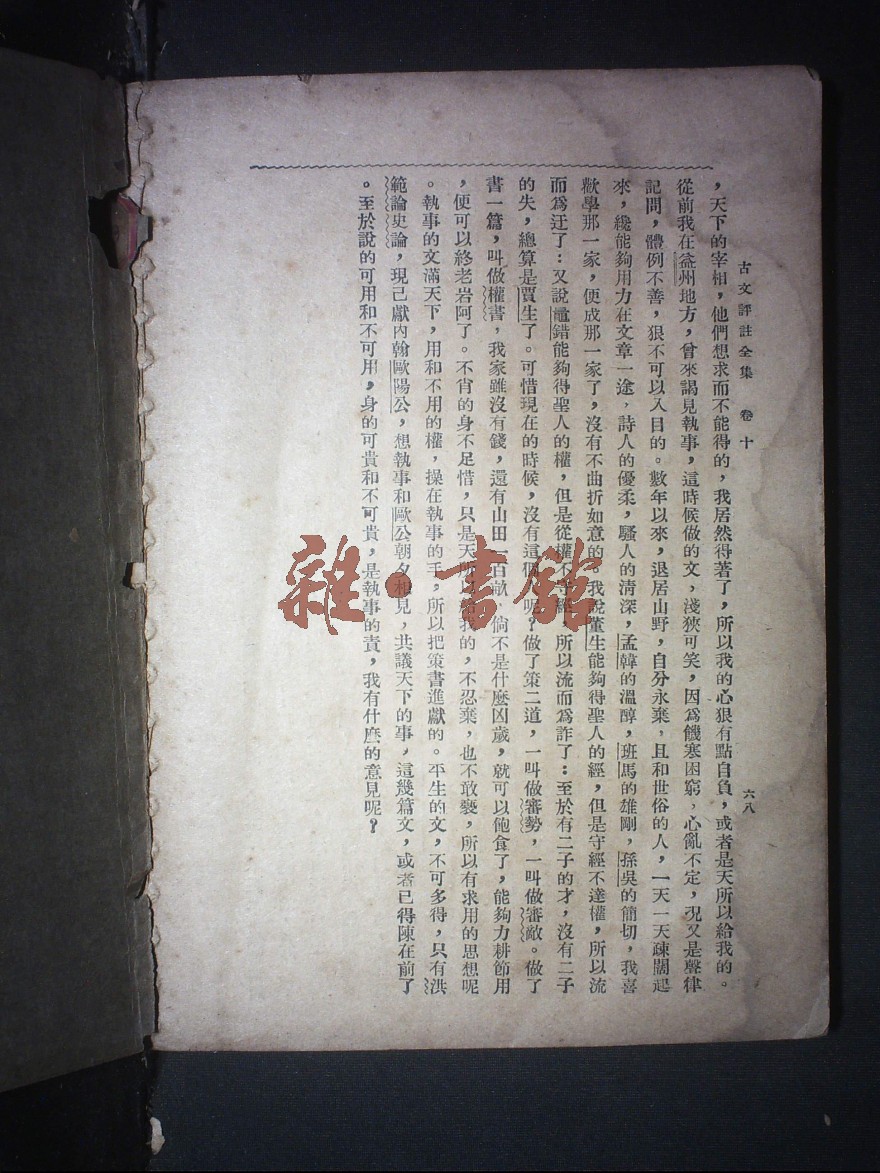 古文評註全集 卷十 六八
，天下的宰相，他們想求而不能得的，我居然得著了，所以我的心狠有點自負，或者是天所以給我的。
從前我在益州地方，曾來謁見執事，這時候做的文，淺狹可笑，因爲饑寒困窮，心亂不定，况又是聲律
記問，體例不善，狠不可以入目的。數年以來，退居山野，自分永棄，且和世俗的人，一天一天疎闊起
來，纔能夠用力在文章一途，詩人的優柔，騷人的淸深，孟韓的溫醇，班馬的雄剛，孫吳的簡切，我喜
歡學那一家，便成那一家了，沒有不曲折如意的，我說董生能夠得聖人的經，但是守經不達權，所以流
而爲迂了：又說鼂錯能夠得聖人的權，但是從權不守經，所以流而爲詐了：至於有二子的才，沒有二子
的失，總算是賈生了。可惜現在的時候，沒有這個呢？做了策二道，一叫做審勢，一叫做審敵。做了
書一篇，叫做權書，我家雖沒有錢，還有山田一百畝，倘不是什麼凶歲，就可以飽食了，能夠力耕節用
，便可以終老岩阿了。不肖的身不足惜，只是天所以給我的，不忍棄，也不敢褻，所以有求用的思想呢
。執事的文滿天下，用和不用的權，操在執事的手，所以把策書進獻的。平生的文，不可多得，只有洪
範論史論，現已獻內翰歐陽公，想執事和歐公朝夕相見，共議天下的事，這幾篇文，或者已得陳在前了
。至於說的可用和不可用，身的可貴和不可貴，是執事的責，我有什麼的意見呢？
雜·書館